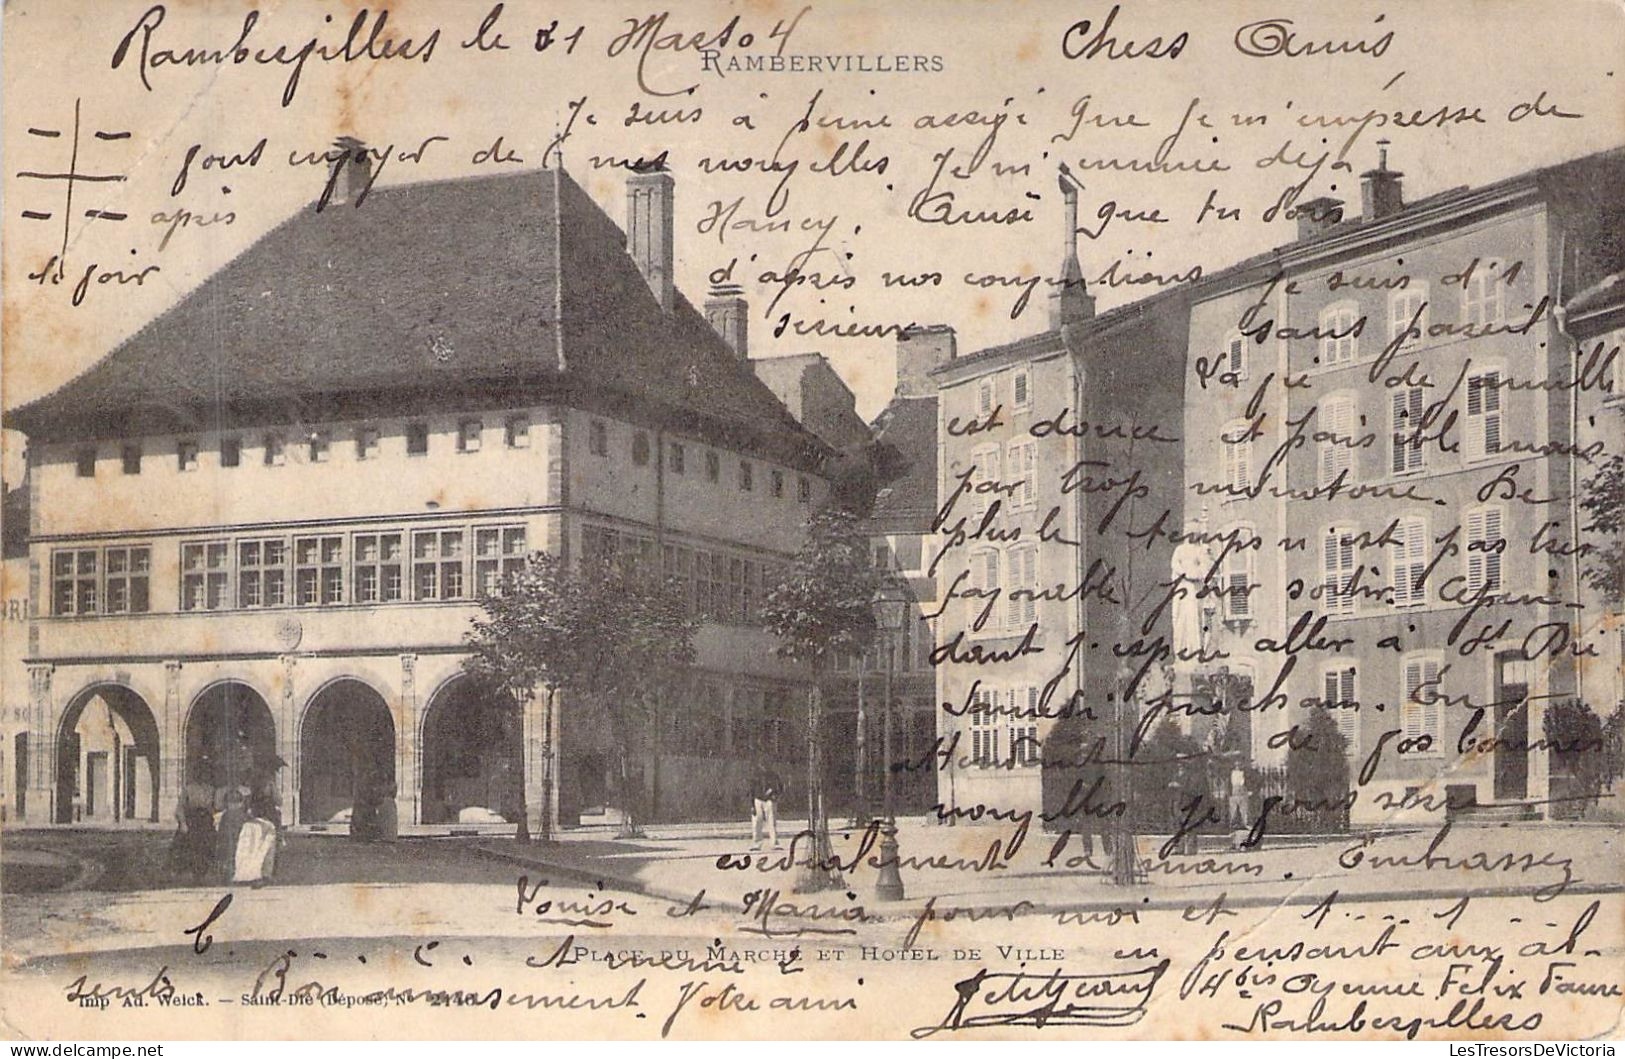 Rambervillers le 21 Mars 04 Chers Amis
RAMBERVILLERS
Je suis à peine assagi que je m'empresse de
vous envoyer de mes nouvelles. Je m'ennuie déja
après Nancy. Aussi que tu dois
le voir d'après nos conventions je suis d'1
serieux sans pareil
La vie de famille
est douce et paisible mais
par trop monotone. De
plus le temps n'est pas tres
favorable pour sortir. Cepen-
dant j'espère aller à St Dié
Samedi prochain. En
attendant de vos bonnes
nouvelles je vous serre
cordialement la main. Embrassez
Louise et Maria pour moi et 1.... 1
b. . . . c. et meme 2 en pensant aux ab-
PLACE DU MARCHÉ ET HOTEL DE VILLE
sents. Bon amusement. Votre ami Petitjean 4bis Avenue Felix Faure
Rambervillers
Imp Ad. Weick. — Saint-Dié (Déposé) N° 2446
LesTresorsDeVictoria.com